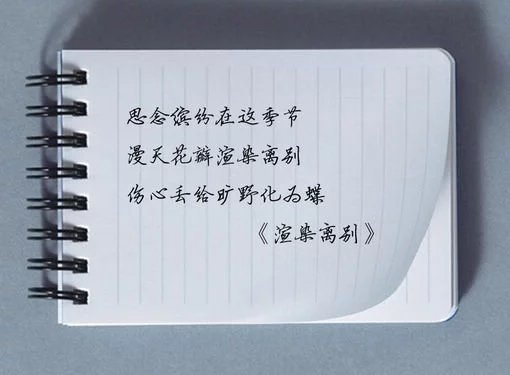 思念缤纷在这季节
漫天花瓣渲染离别
伤心丢给旷野化为蝶
《渲染离别》